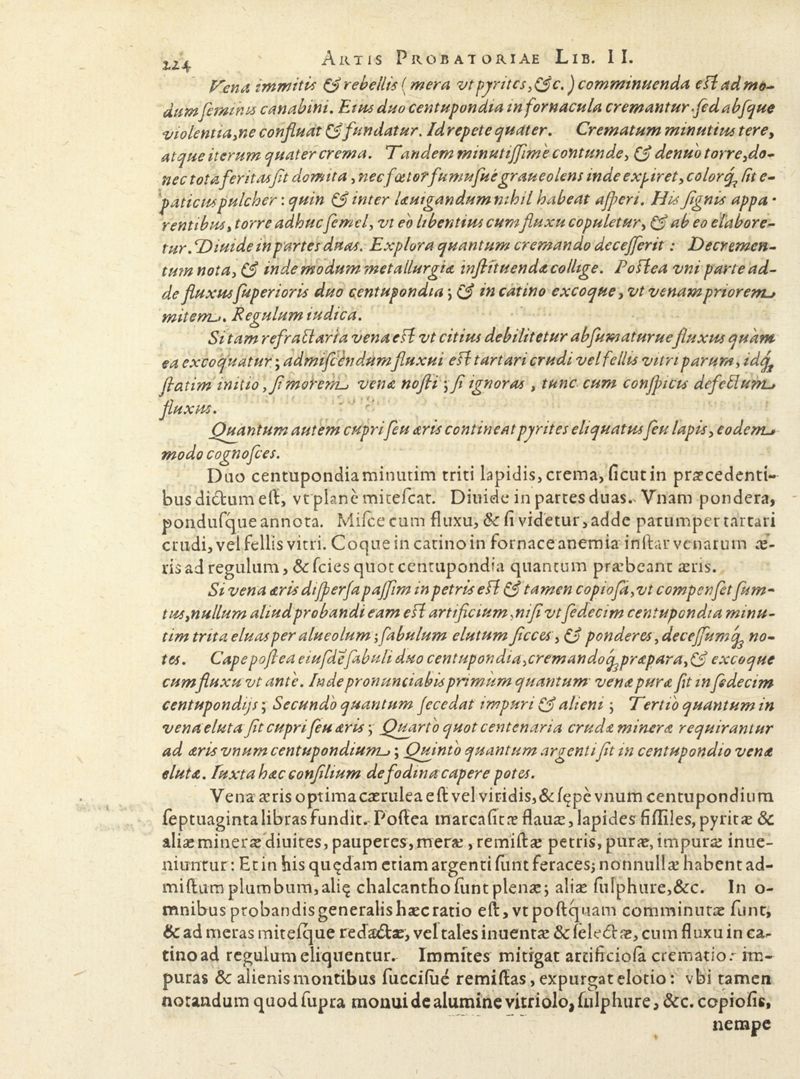 224 ARTIS PROBATORIAE LIB. II.
Vena immitis & rebellis (mera vt pyrites, &c.) comminuenda est ad mo-
dum seminis canabini. Eius duo centupondia in fornacula cremantur sed absque
violentia, ne confluat & fundatur. Id repete quater. Crematum minutius tere,
atque iterum quater crema. Tandem minutissime contunde, & denuo torre, do-
nec tota feritas sit domita, nec fœtor fumusue graueolens inde expiret, colorq; sit e-
paticus pulcher: quin & inter læuigandum nihil habeat asperi. His signis appa-
rentibus, torre adhuc semel, vt eo libentius cum fluxu copuletur, & ab eo elabore-
tur. Diuide in partes duas. Explora quantum cremando decesserit: Decremen-
tum nota, & inde modum metallurgiæ instituendæ collige. Postea vni parte ad-
de fluxus superioris duo centupondia; & in catino excoque, vt venam priorem
mitem. Regulum iudica.
Si tam refractaria vena est vt citius debilitetur absumaturue fluxus quàm
ea excoquatur; admiscendum fluxui est tartari crudi vel fellis vitri parum, idq;
statim initio, si morem venæ nosti; si ignoras, tunc cum conspicis defectum
fluxus.
Quantum autem cupri seu æris contineat pyrites eliquatus seu lapis, eodem
modo cognosces.
Duo centupondia minutim triti lapidis, crema, sicut in præcedenti-
bus dictum est, vt planè mitescat. Diuide in partes duas. Vnam pondera,
pondusque annota. Misce cum fluxu, & si videtur, adde parumper tartari
crudi, vel fellis vitri. Coque in catino in fornace anemia instar venarum æ-
ris ad regulum, & scies quot centupondia quantum præbeant æris.
Si vena æris dispersa passim in petris est & tamen copiosa, vt compenset sum-
tus, nullum aliud probandi eam est artificium, nisi vt sedecim centupondia minu-
tim trita eluas per alueolum; sabulum elutum sicces, & ponderes, decessumq; no-
tes. Cape postea eiusdē sabuli duo centupondia, cremandoq; præpara, & excoque
cum fluxu vt ante. Inde pronunciabis primum quantum venæ puræ sit in sedecim
centupondijs; Secundò quantum secedat impuri & alieni; Tertiò quantum in
vena eluta sit cupri seu æris; Quartò quot centenaria crudæ mineræ requirantur
ad æris vnum centupondium; Quintò quantum argenti sit in centupondio venæ
elutæ. Iuxta hæc consilium de fodina capere potes.
Vena æris optima cærulea est vel viridis, & sępè vnum centupondium
septuaginta libras fundit. Postea marcasitæ flauæ, lapides fissiles, pyritæ &
aliæ mineræ diuites, pauperes, meræ, remistæ petris, puræ, impuræ inue-
niuntur: Et in his quędam etiam argenti sunt feraces; nonnullæ habent ad-
mistum plumbum, alię chalcantho sunt plenæ; aliæ sulphure, &c. In o-
mnibus probandis generalis hæc ratio est, vt postquam comminutæ sunt,
& ad meras mitesque redactæ, vel tales inuentæ & selectæ, cum fluxu in ca-
tino ad regulum eliquentur. Immites mitigat artificiosa crematio: im-
puras & alienis montibus succisué remistas, expurgat elotio: vbi tamen
notandum quod supra monui de alumine vitriolo, sulphure, &c. copiosis,
nempe